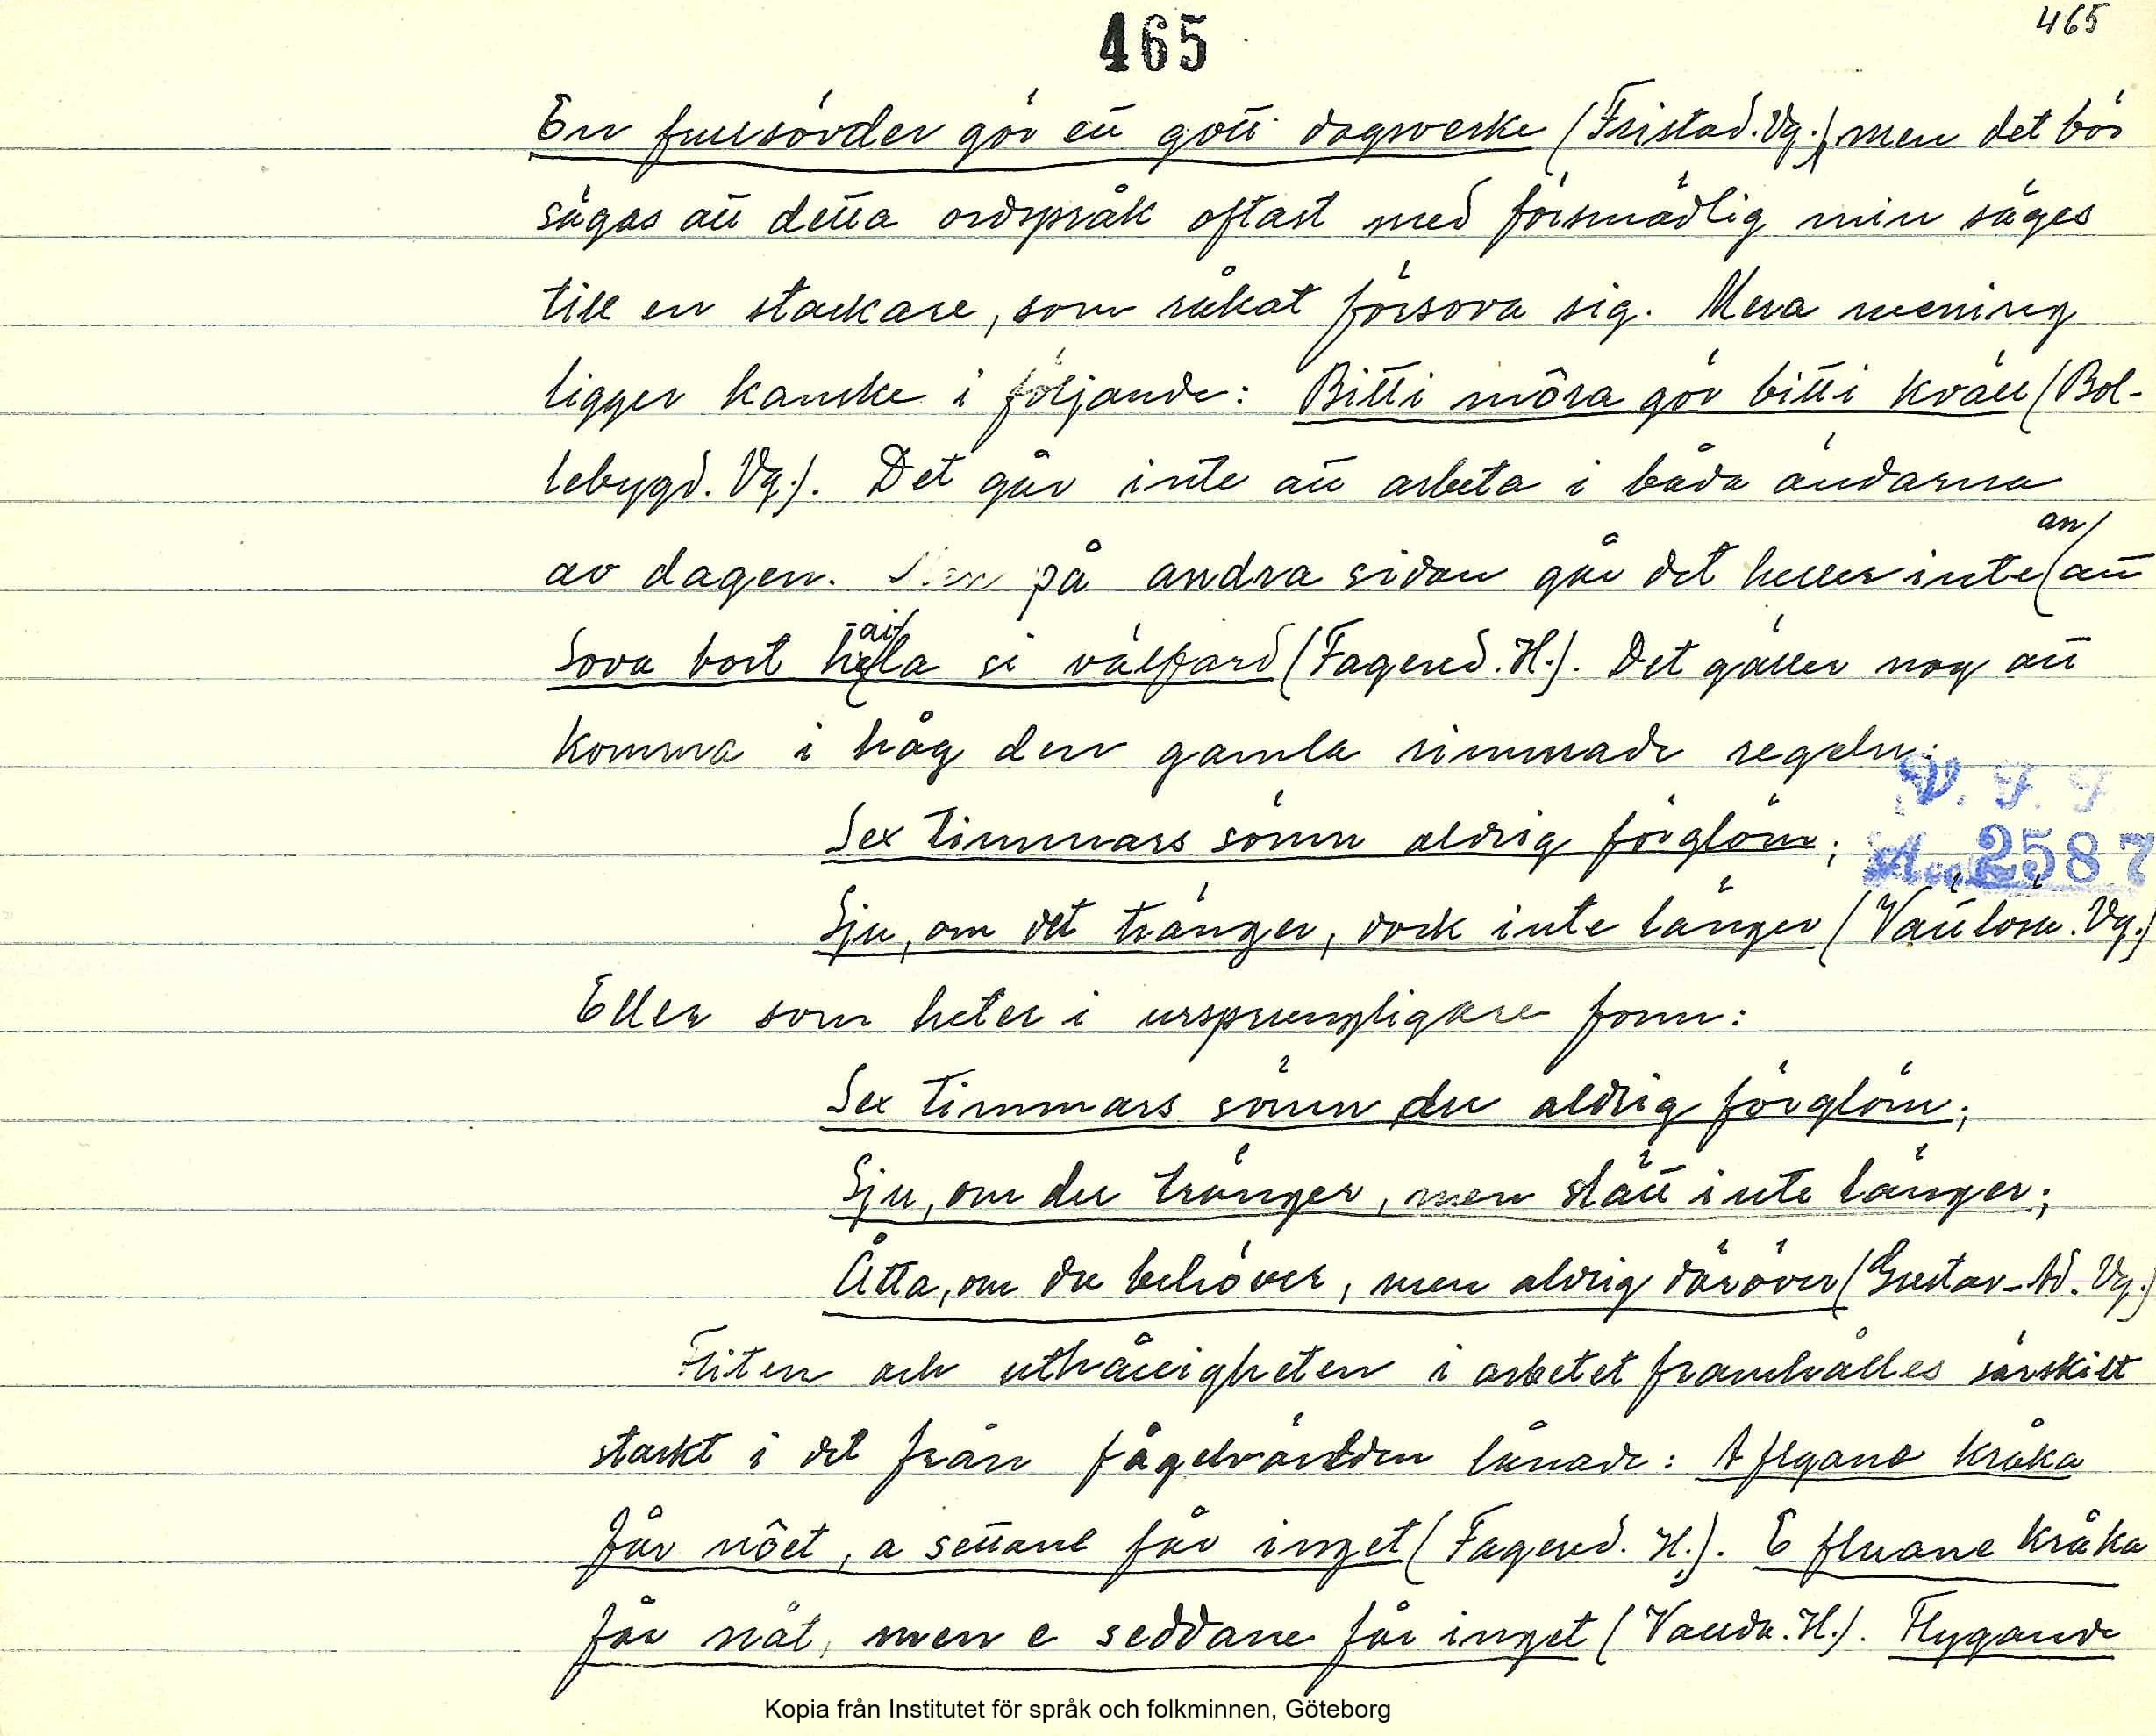 465
465
En fullsövder gör ett gott dagsverke (Fristad. Vg.), men det bör
sägas att detta ordspråk oftast med försmädlig min säges
till en stackare, som råkat försova sig. Mera mening
ligger kanske i följande: Bitti môra gör bitti kväll (Bol-
lebygd. Vg.). Det går inte att arbeta i båda ändarna
av dagen. Men på andra sidan går det heller inte an att
sova bort haila si välfärd (Fagered. H.). Det gäller nog att
komma i håg den gamla rimmade regeln:
Sex timmars sömn aldrig förglöm;
Sju, om det tränger, dock inte länger (Vättlösa. Vg.)
V. F. F.
Acc. 2587
Eller som heter i ursprungligare form:
Sex timmars sömn du aldrig förglöm;
Sju, om du tränger, men slätt inte länger;
Åtta, om du behöver, men aldrig däröver (Gustav-Ad. Vg.)
Fliten och uthålligheten i arbetet framhålles särskilt
starkt i det från fågelvärlden lånade: A flygane kråka
får nôet, a settane får inget (Fagered. H.). E fluane kråka
får nåt, men e seddane får inget (Valida. H.). Flygande
Kopia från Institutet för språk och folkminnen, Göteborg